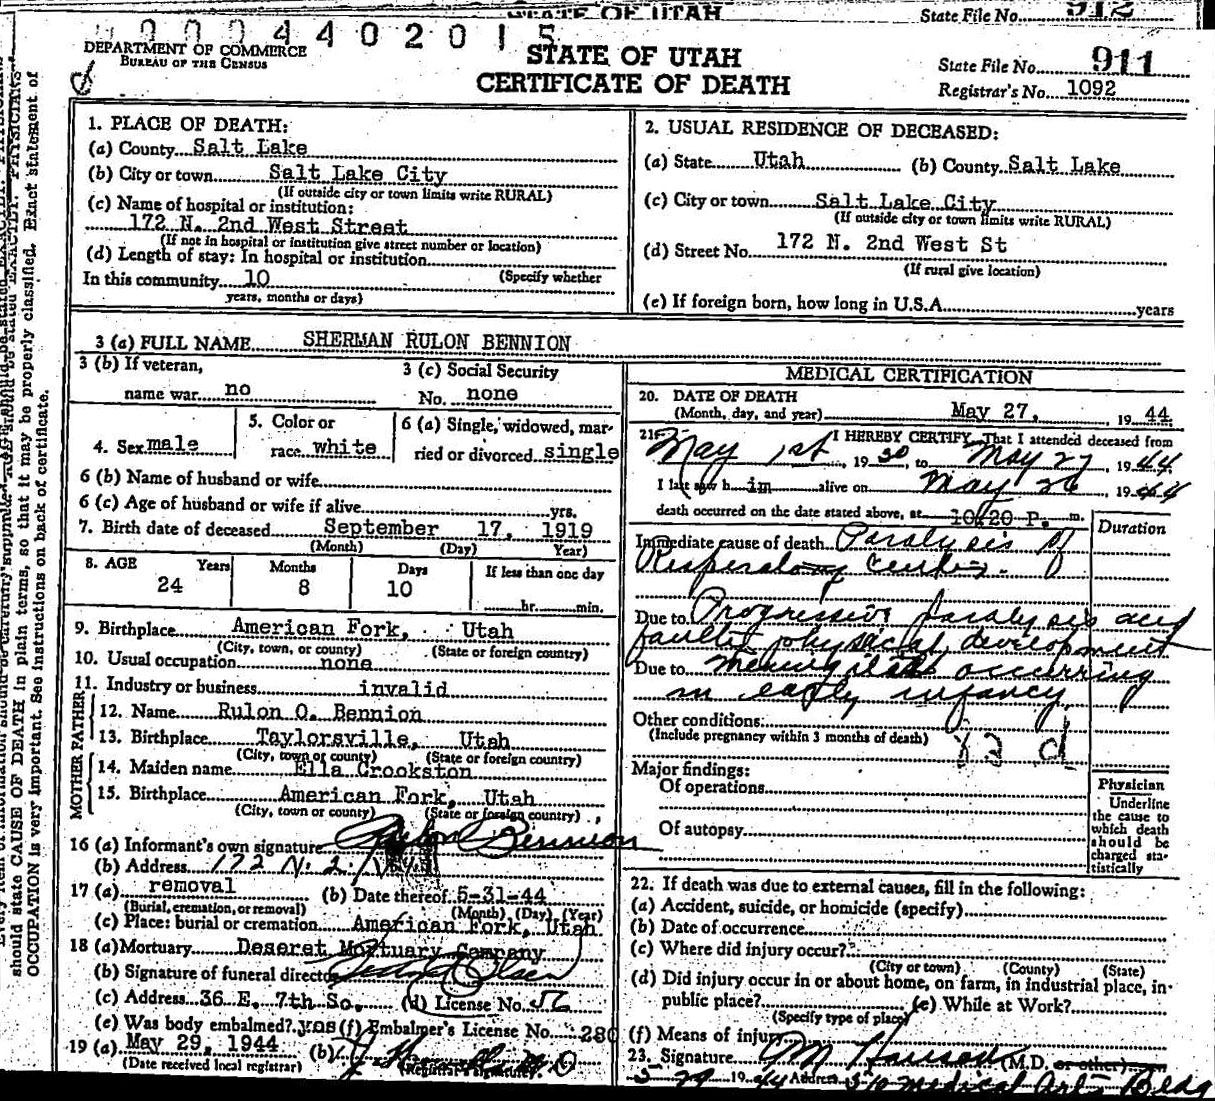 STATE OF UTAH
State File No. 912
0 0 0 4 4 0 2 0 1 5
DEPARTMENT OF COMMERCE
BUREAU OF THE CENSUS
STATE OF UTAH
CERTIFICATE OF DEATH
State File No. 911
Registrar's No. 1092
1. PLACE OF DEATH:
(a) County Salt Lake
(b) City or town Salt Lake City
(If outside city or town limits write RURAL)
(c) Name of hospital or institution:
172 N. 2nd West Street
(If not in hospital or institution give street number or location)
(d) Length of stay: In hospital or institution
(Specify whether
In this community 10
years, months or days)
2. USUAL RESIDENCE OF DECEASED:
(a) State Utah (b) County Salt Lake
(c) City or town Salt Lake City
(If outside city or town limits write RURAL)
(d) Street No. 172 N. 2nd West St
(If rural give location)
(e) If foreign born, how long in U.S.A. years
3 (a) FULL NAME SHERMAN RULON BENNION
3 (b) If veteran,
name war no
3 (c) Social Security
No. none
4. Sex male
5. Color or
race white
6 (a) Single, widowed, mar-
ried or divorced single
6 (b) Name of husband or wife
6 (c) Age of husband or wife if alive yrs.
7. Birth date of deceased September 17, 1919
(Month) (Day) Year)
8. AGE Years Months Days If less than one day
24 8 10 hr. min.
9. Birthplace American Fork, Utah
(City, town, or county) (State or foreign country)
10. Usual occupation none
11. Industry or business invalid
FATHER
12. Name Rulon O. Bennion
13. Birthplace Taylorsville, Utah
(City, town or county) (State or foreign country)
MOTHER
14. Maiden name Ella Crookston
15. Birthplace American Fork, Utah
(City, town or county) (State or foreign country)
16 (a) Informant's own signature Rulon Bennion
(b) Address 172 N. 2.
17 (a) removal (b) Date thereof 5-31-44
(Burial, cremation, or removal) (Month) (Day) (Year)
(c) Place: burial or cremation American Fork, Utah
18 (a) Mortuary Deseret Mortuary Company
(b) Signature of funeral director Olsen
(c) Address 36 E. 7th So. (d) License No. 56
(e) Was body embalmed? yes (f) Embalmer's License No. 280
19 (a) May 29, 1944 (b)
(Date received local registrar) (Registrar's signature)
MEDICAL CERTIFICATION
20. DATE OF DEATH
(Month, day, and year) May 27, 19 44
21. I HEREBY CERTIFY, That I attended deceased from
May 1st, 19 30, to May 27, 19 44
I last saw h im alive on May 26, 19 44
death occurred on the date stated above, at 10:20 P. m.
Duration
Immediate cause of death Paralysis of
Respiratory Center.
Due to Progressive paralysis and
faulty physical development
Due to meningitis occurring
in early infancy
Other conditions:
(Include pregnancy within 3 months of death)
Major findings:
Of operations
Of autopsy
Physician
Underline
the cause to
which death
should be
charged sta-
tistically
22. If death was due to external causes, fill in the following:
(a) Accident, suicide, or homicide (specify)
(b) Date of occurrence
(c) Where did injury occur?
(City or town) (County) (State)
(d) Did injury occur in or about home, on farm, in industrial place, in
public place? (e) While at Work?
(Specify type of place)
(f) Means of injury
23. Signature (M.D. or other)
5 29 19 44 Address 510 Medical Arts Bldg
should state CAUSE OF DEATH in plain terms, so that it may be properly classified. Exact statement of
OCCUPATION is very important. See instructions on back of certificate.